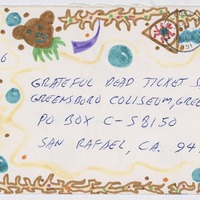 6
GRATEFUL DEAD TICKET S
GREENSBORO COLISEUM, GREE
PO BOX C-SB150
SAN RAFAEL, CA. 94